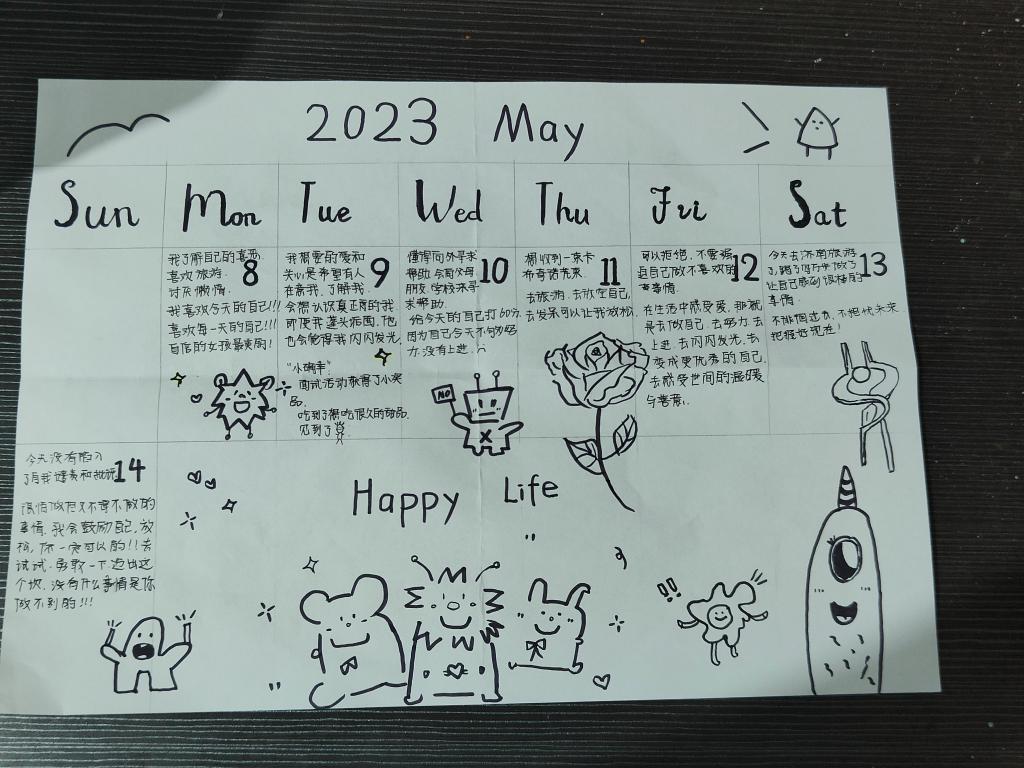 2023 May
Sun Mon Tue Wed Thu Fri Sat
8
我了解自己的喜恶
喜欢旅游.
讨厌懒惰.
我喜欢今天的自己!!!
喜欢每一天的自己!!!
自信的女孩最美丽!
9
我需要的爱和
关心是希望有人
在意我、了解我.
会想认识真正的我
即使我蓬头垢面,他
也会觉得我闪闪发光
"小确幸"
面试活动获得了小奖
品.
吃到了想吃很久的甜品.
见到了
10
懂得向外寻求
帮助.会向父母
朋友,学校来寻
求帮助.
给今天的自己打60分
因为自己今天不够努
力.没有上进.
NO
11
想收到一束卡
布奇诺花束.
去旅游.去放空自己
去发呆可以让我放松.
12
可以拒绝.不要强
迫自己做不喜欢的
事情
在生活中感受爱.那就
是去做自己.去努力.去
上进.去闪闪发光.去
变成更优秀的自己.
去感受世间的温暖
与善意.
13
今天去济南旅游
了,踏了
让自己感到很棒的
事情.
不排,不担忧未来
把握好现在!
14
今天没有陷入
了自我谴责和批评
很怕做但又不得不做的
事情.我会鼓励自己,放
松,你一定可以的!!去
试试.勇敢一下.迈出这
个坎.没有什么事情是你
做不到的!!!
Happy Life